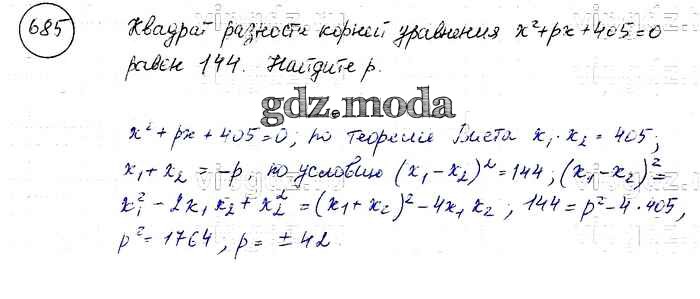 685
Квадрат разности корней уравнения x²+px+405=0
равен 144. Найдите p.
gdz.moda
x²+px+405=0; по теореме Виета x₁·x₂=405;
x₁+x₂=-p, по условию (x₁-x₂)²=144; (x₁-x₂)²=
x₁²-2x₁x₂+x₂²=(x₁+x₂)²-4x₁x₂; 144=p²-4·405,
p²=1764; p=±42.